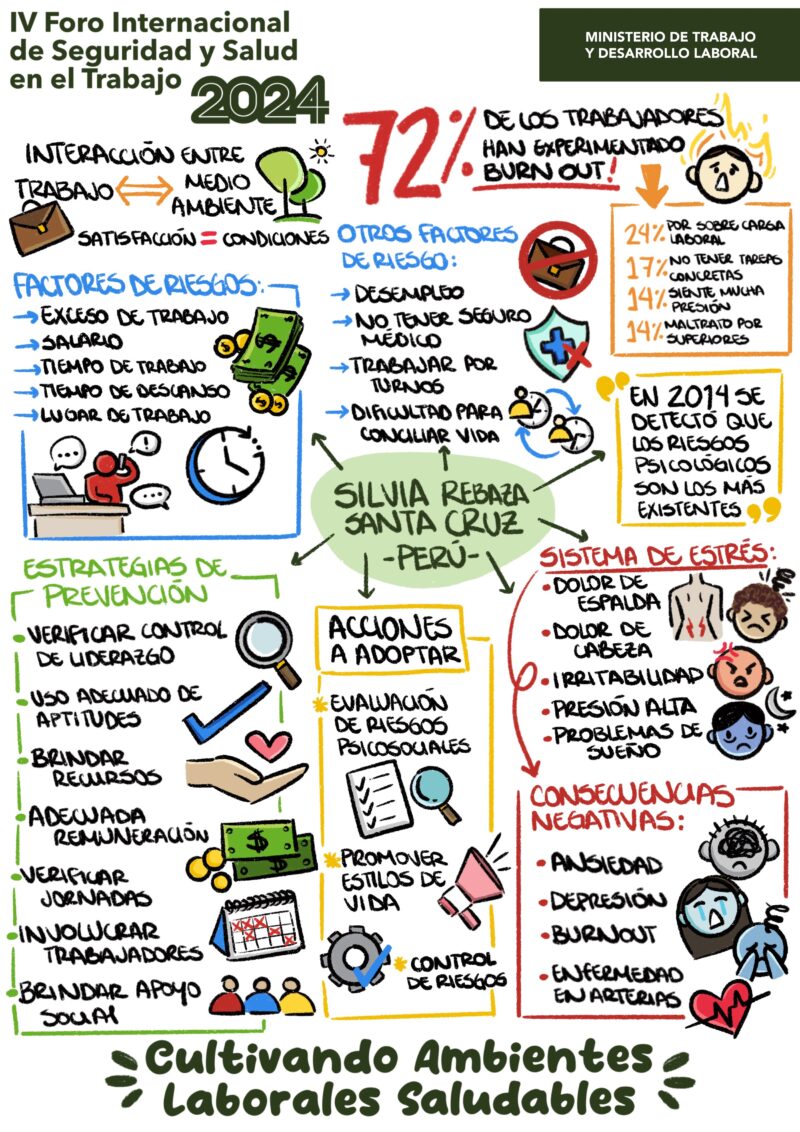 IV Foro Internacional
de Seguridad y Salud
en el Trabajo
2024
MINISTERIO DE TRABAJO
Y DESARROLLO LABORAL
INTERACCIÓN ENTRE
TRABAJO
MEDIO
AMBIENTE
SATISFACCIÓN = CONDICIONES
72%
DE LOS TRABAJADORES
HAN EXPERIMENTADO
BURN OUT!
24% POR SOBRE CARGA
LABORAL
17% NO TENER TAREAS
CONCRETAS
14% SIENTE MUCHA
PRESIÓN
14% MALTRATO POR
SUPERIORES
FACTORES DE RIESGOS:
→ EXCESO DE TRABAJO
→ SALARIO
→ TIEMPO DE TRABAJO
→ TIEMPO DE DESCANSO
→ LUGAR DE TRABAJO
OTROS FACTORES
DE RIESGO:
→ DESEMPLEO
→ NO TENER SEGURO
MÉDICO
→ TRABAJAR POR
TURNOS
→ DIFICULTAD PARA
CONCILIAR VIDA
EN 2014 SE
DETECTÓ QUE
LOS RIESGOS
PSICOLÓGICOS
SON LOS MÁS
EXISTENTES
SILVIA REBAZA
SANTA CRUZ
-PERÚ-
ESTRATEGIAS DE
PREVENCIÓN
• VERIFICAR CONTROL
DE LIDERAZGO
• USO ADECUADO DE
APTITUDES
• BRINDAR
RECURSOS
• ADECUADA
REMUNERACIÓN
• VERIFICAR
JORNADAS
• INVOLUCRAR
TRABAJADORES
• BRINDAR APOYO
SOCIAL
ACCIONES
A ADOPTAR
* EVALUACIÓN
DE RIESGOS
PSICOSOCIALES
* PROMOVER
ESTILOS DE
VIDA
* CONTROL
DE RIESGOS
SISTEMA DE ESTRÉS:
• DOLOR DE
ESPALDA
• DOLOR DE
CABEZA
• IRRITABILIDAD
• PRESIÓN ALTA
• PROBLEMAS DE
SUEÑO
CONSECUENCIAS
NEGATIVAS:
• ANSIEDAD
• DEPRESIÓN
• BURNOUT
• ENFERMEDAD
EN ARTERIAS
Cultivando Ambientes
Laborales Saludables